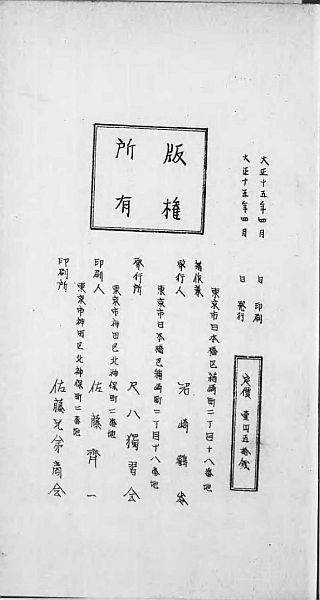 大正十五年四月　日　印刷
大正十五年四月　日　発行
定價　壹円五拾銭
版權所有
東京市日本橋区箱崎町二丁目十八番地
著作兼発行人
岩崎鶴峯
東京市日本橋区箱崎町二丁目十八番地
発行所
尺八獨習会
東京市神田区北神保町二番地
印刷人
佐藤齊一
東京市神田区北神保町二番地
印刷所
佐藤兄弟商会